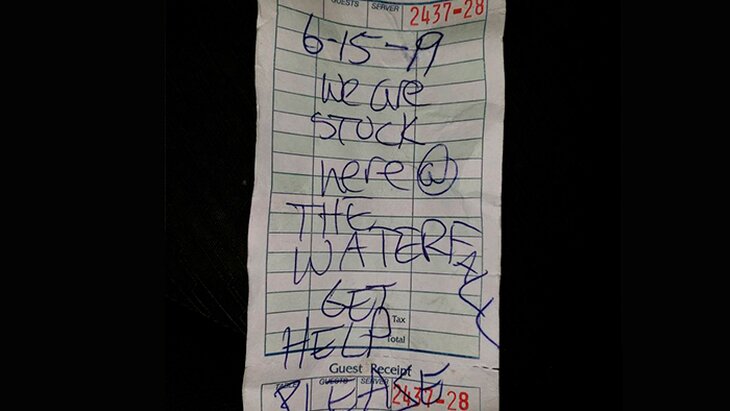 GUESTS SERVER 2437-28
6-15-19
We are
STUCK
here @
THE
WATERFALL
GET
Tax
HELP Total
Guest Receipt
GUESTS SERVER
PLEASE 2437-28